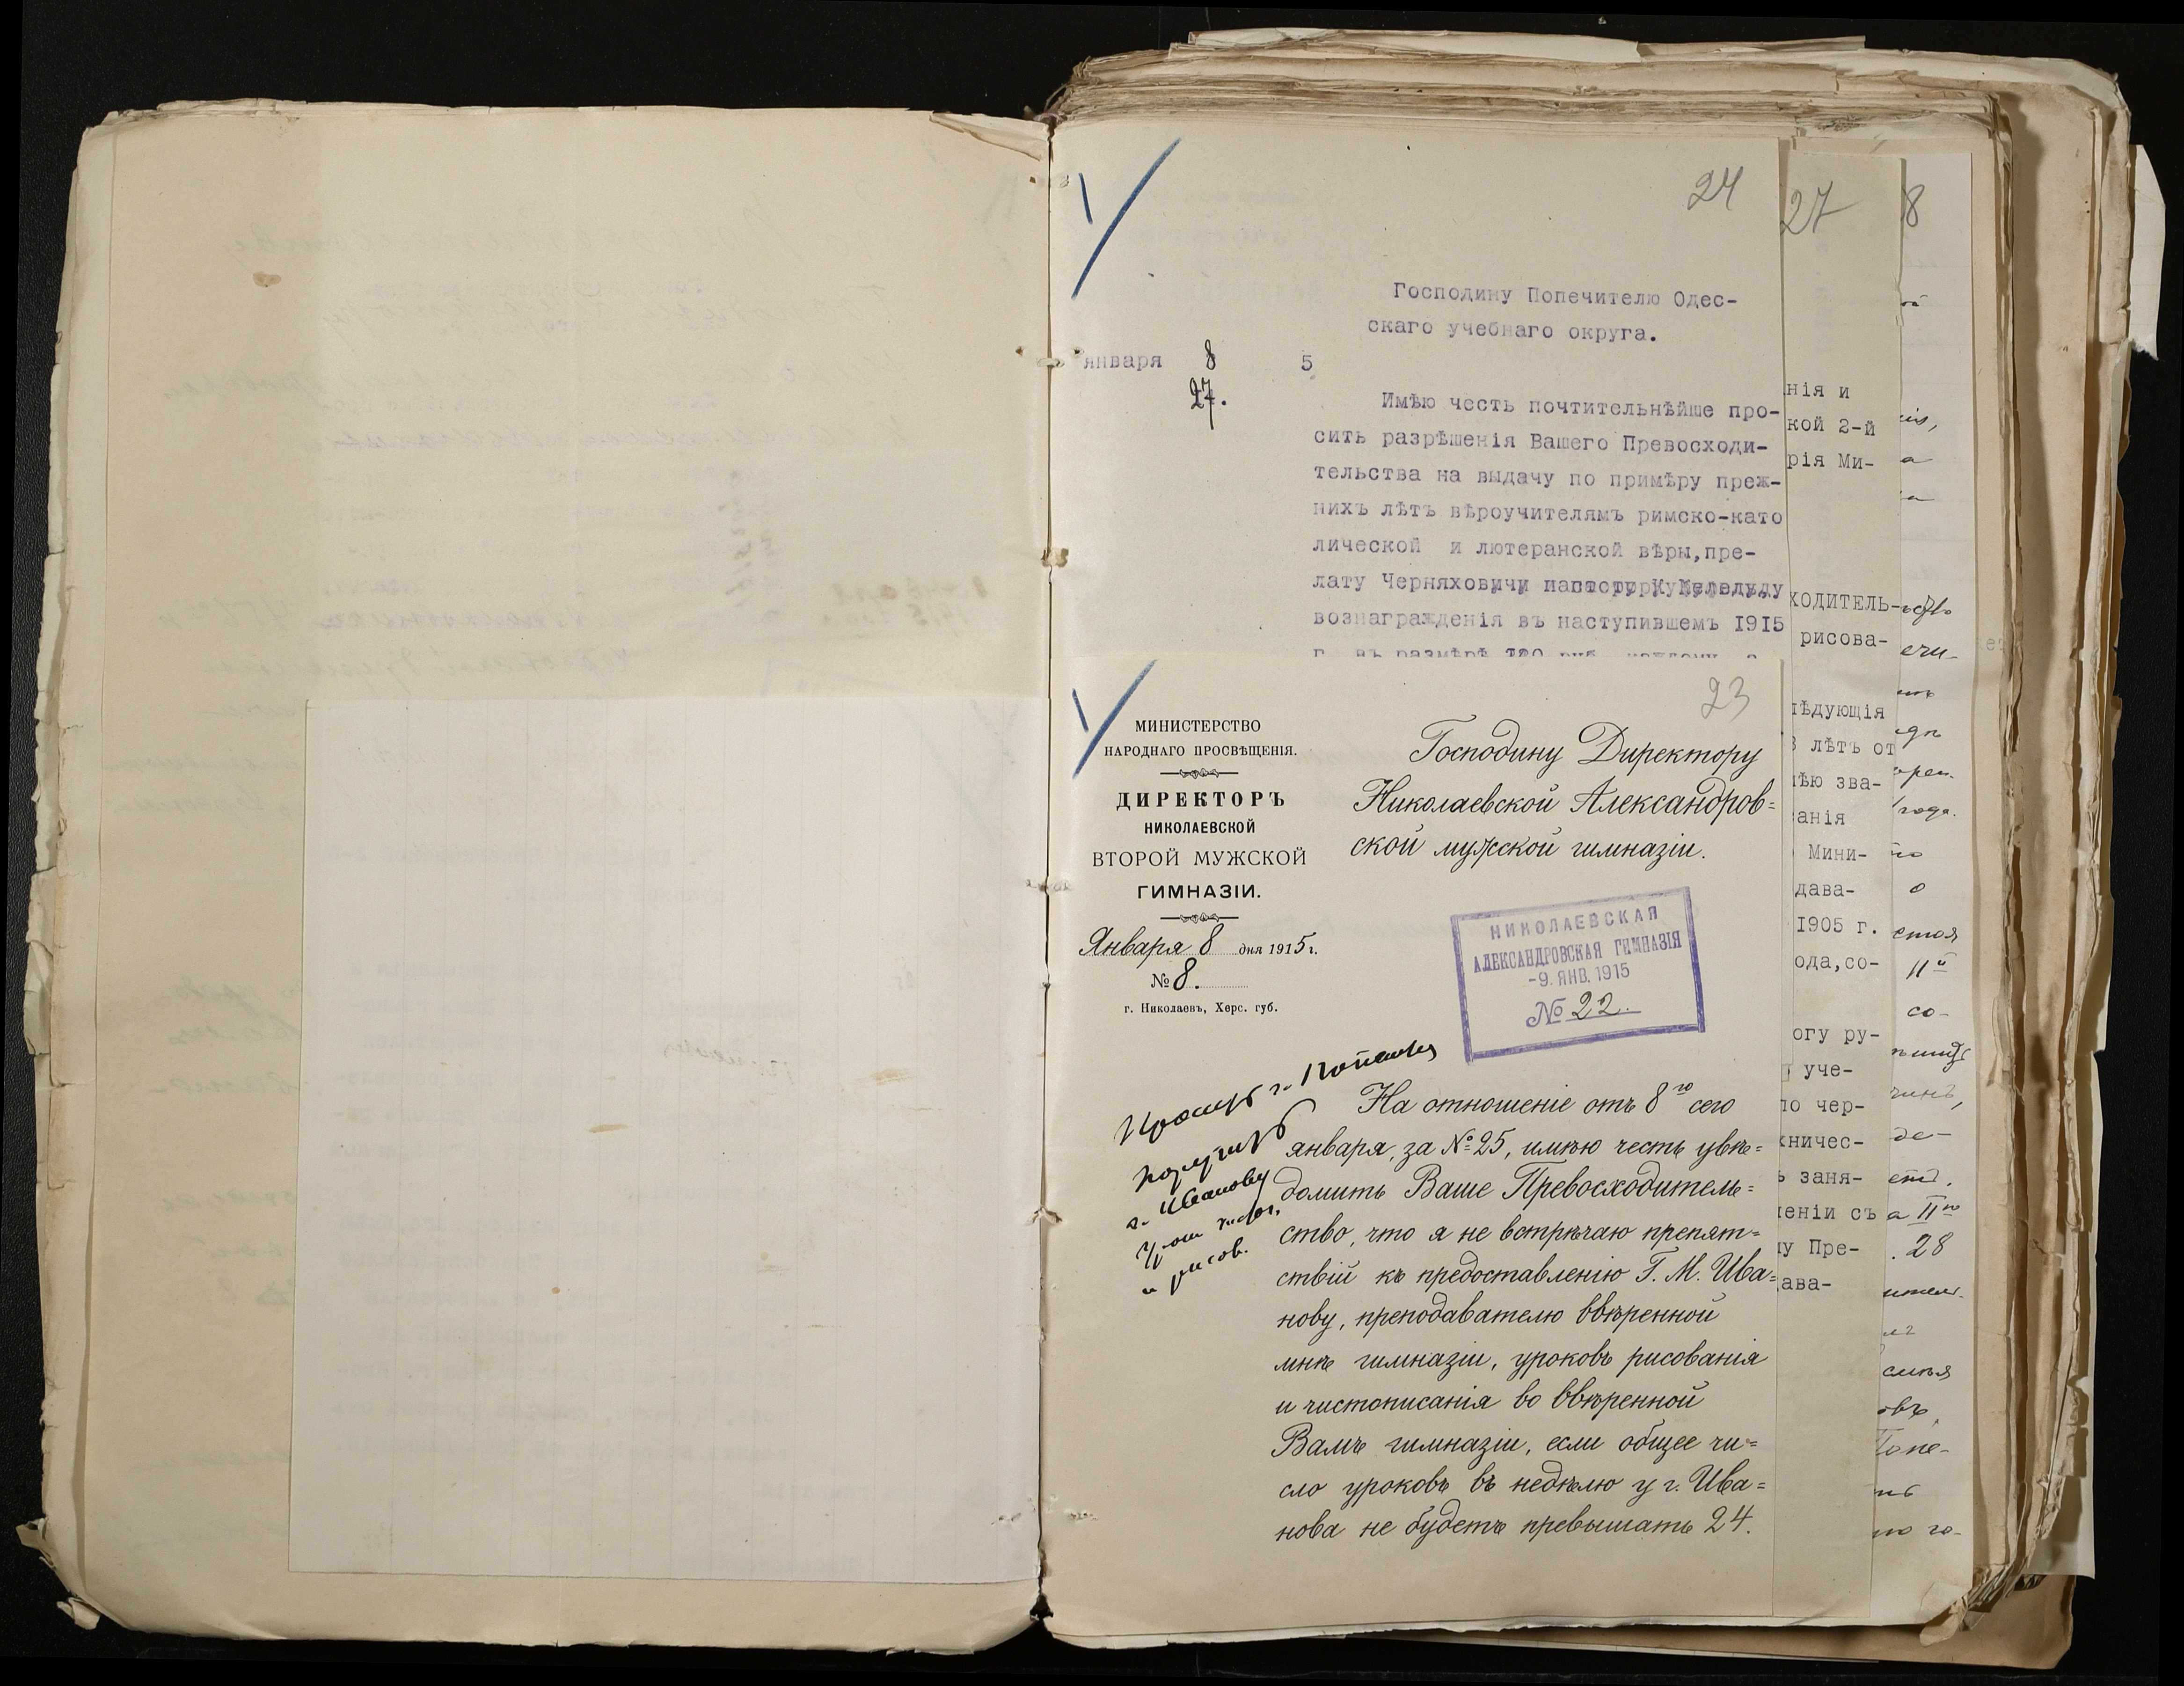 24
Господину Попечителю Одес-
скаго учебнаго округа.
января 8 5
27.
Имѣю честь почтительнѣйше про-
сить разрѣшенія Вашего Превосходи-
тельства на выдачу по примѣру преж-
нихъ лѣтъ вѣроучителямъ римско-като
лической и лютеранской вѣры,пре-
лату Черняховичу и пастору
вознагражденія въ наступившемъ 1915
г. въ размѣрѣ руб. каждому
23
МИНИСТЕРСТВО
НАРОДНАГО ПРОСВѢЩЕНІЯ.
ДИРЕКТОРЪ
НИКОЛАЕВСКОЙ
ВТОРОЙ МУЖСКОЙ
ГИМНАЗІИ.
Января 8 дня 1915 г.
№ 8.
г. Николаевъ, Херс. губ.
Господину Директору
Николаевской Александров=
ской мужской гимназіи.
НИКОЛАЕВСКАЯ
АЛЕКСАНДРОВСКАЯ ГИМНАЗІЯ
-9. ЯНВ. 1915
№ 22.
г.
г. Иванову
и рисов.
На отношеніе отъ 8го сего
января, за № 25, имѣю честь увѣ=
домить Ваше Превосходитель=
ство, что я не встрѣчаю препят=
ствій къ предоставленію Г. М. Ива=
нову, преподавателю ввѣренной
мнѣ гимназіи, уроковъ рисованія
и чистописанія во ввѣренной
Вамъ гимназіи, если общее чи=
сло уроковъ въ недѣлю у г. Ива=
нова не будетъ превышать 24.
27
нія и
кой 2-й
рія Ми-
ХОДИТЕЛЬ-
рисова-
ѣдующія
лѣтъ от
ѣю зва-
анія
Мини-
дава-
1905 г.
ода,со-
огу ру-
уче-
по чер-
хничес-
заня-
еніи съ
у Пре-
ава-
8
ечи-
года.
о
стоя
11й
со-
де-
а IIго
28
ител.
овъ,
Попе-
го-